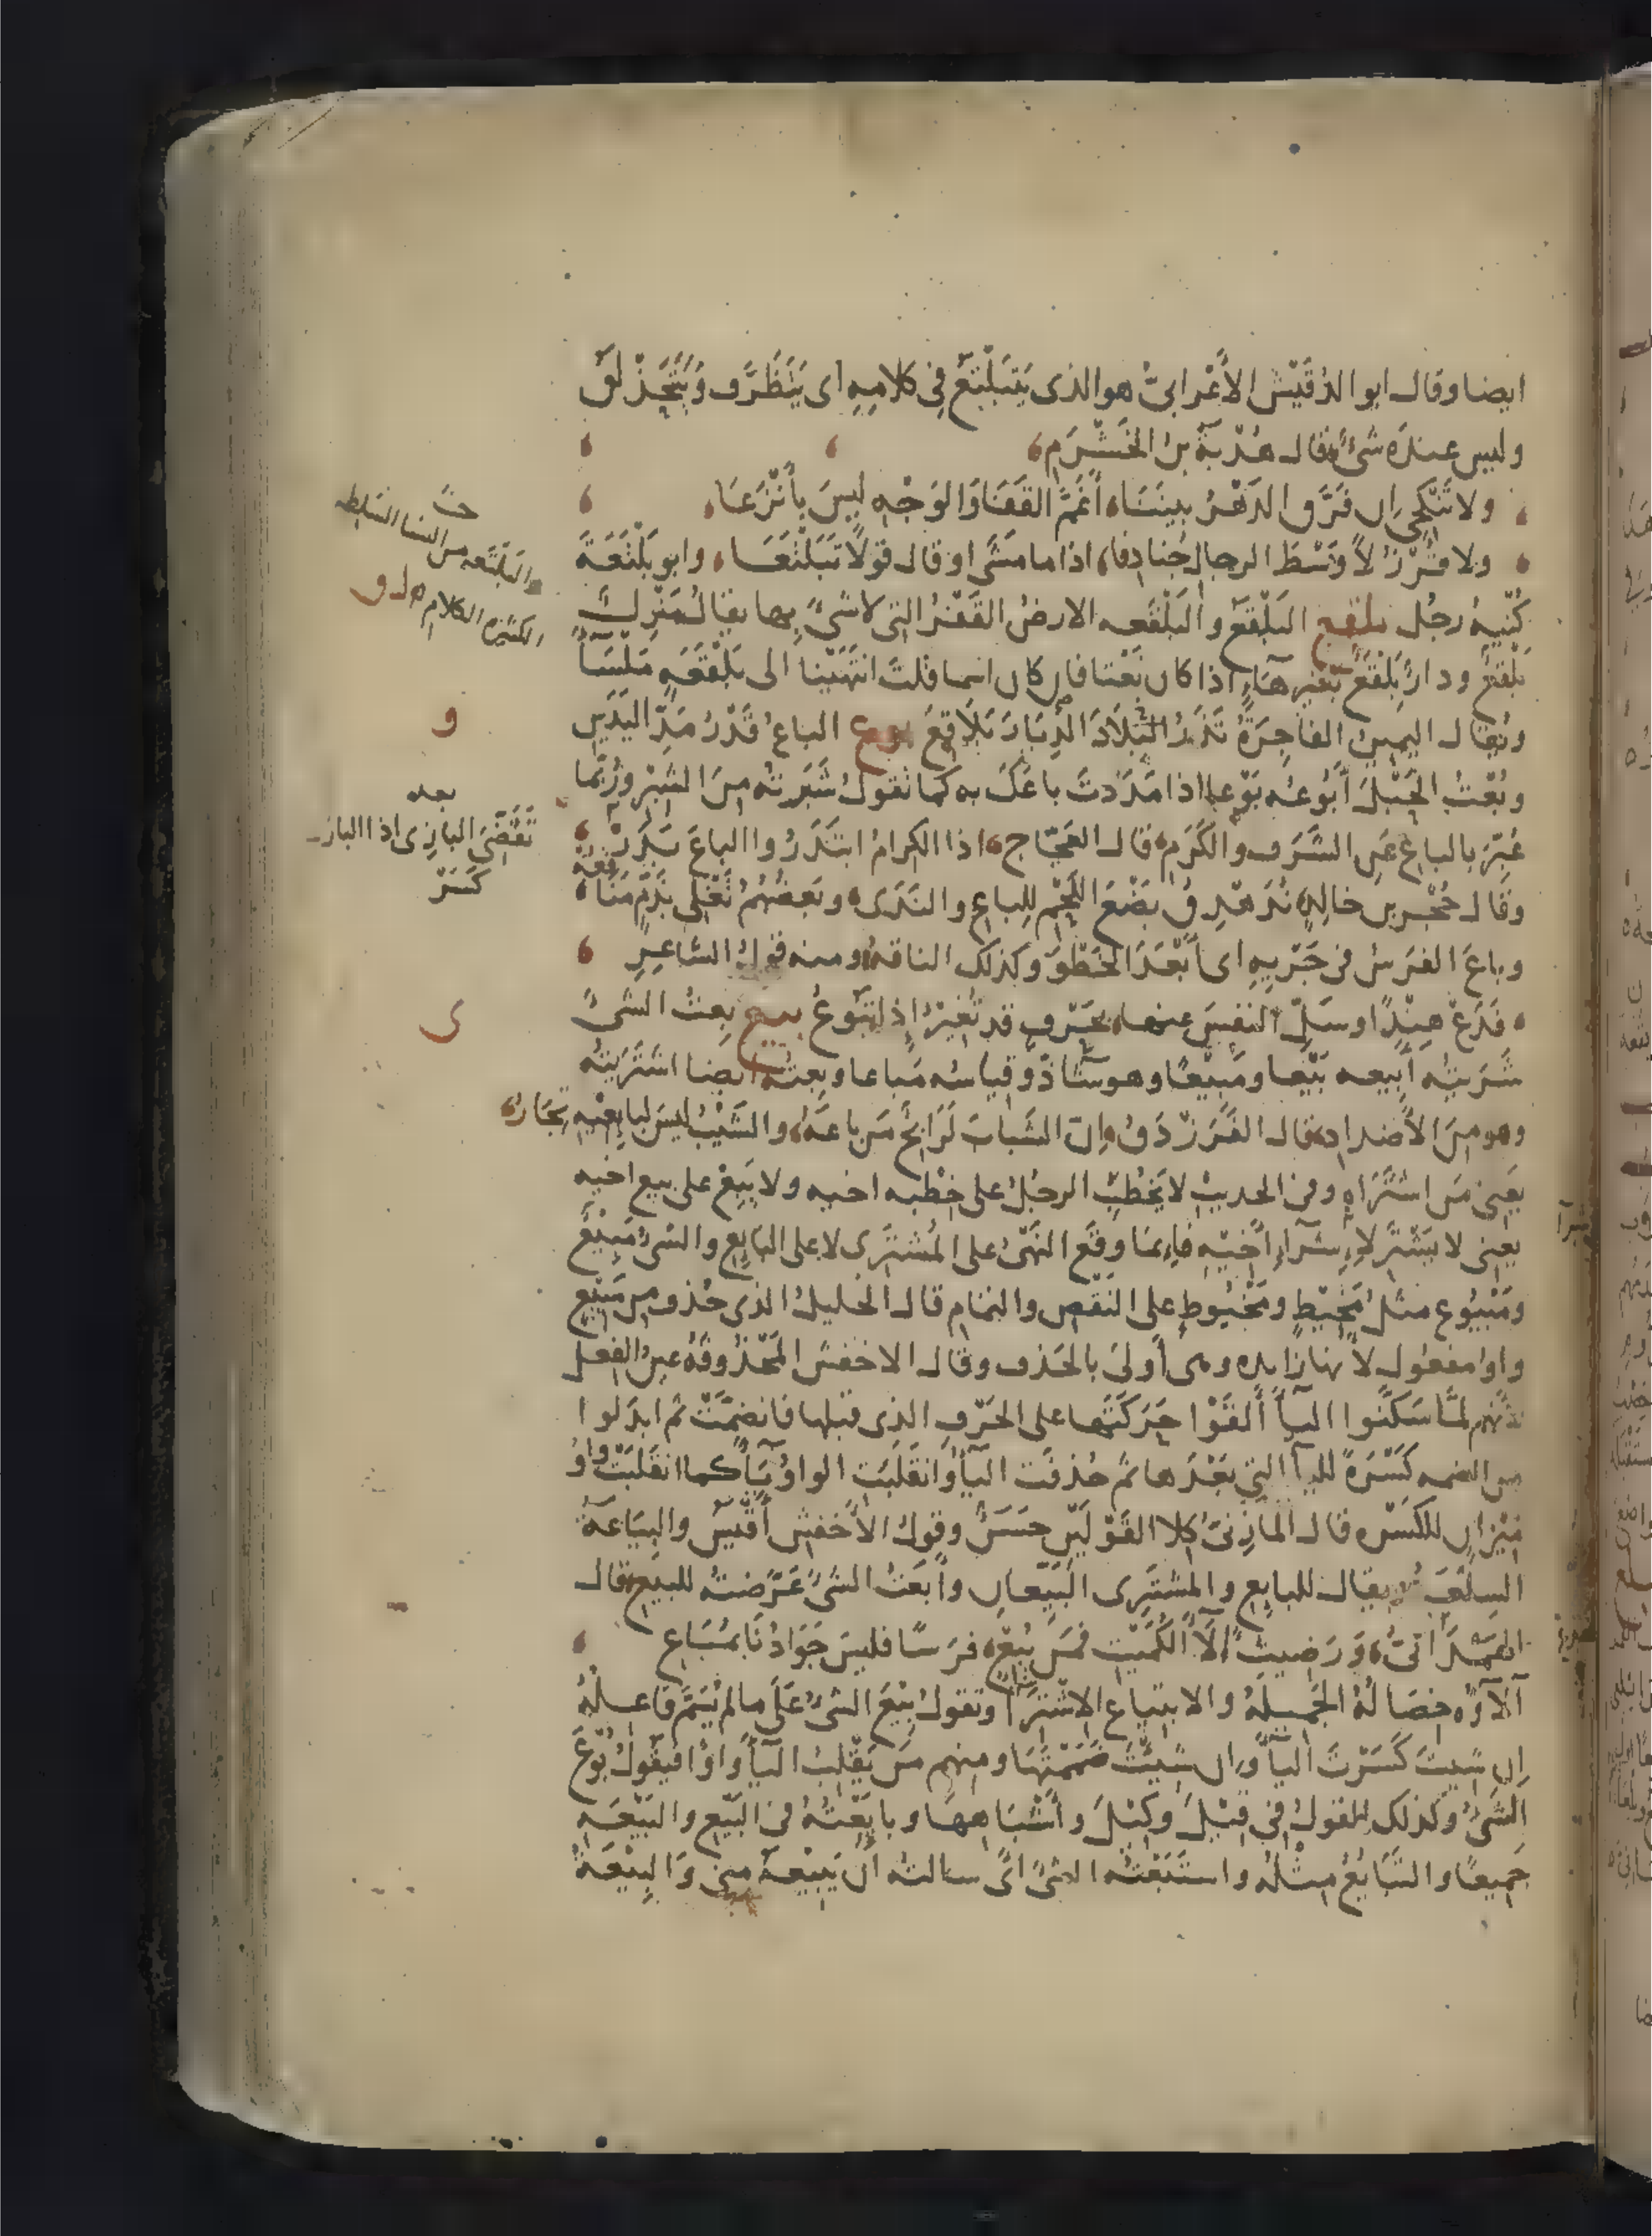 ايضا وقال ابو الدُقَيْش الأَعْرابىُّ هو الذى يَتَبَلْتَعُ فِى كلامِهِ اى يَتَظَرَّف وَيَتَحَذْلَقُ
وليس عنده شىءٌ قال هُدْبَةُ بنُ الخَشْرَمِ
ولا تَنْكِحِى اِن فَرَّقَ الدَهْرُ بينَنَا أَغَمَّ القَفَا وَالوَجْهِ ليسَ بأَنْزَعَا
ولا قُرْزُلاً وَسْطَ الرجالِ جُنادِفا اذا ما مَشَى او قال قولاً تَبَلْتَعَا وابو بَلْتَعَةَ
كُنْيَةُ رجُل بلقع البَلْقَعُ والبَلْقَعه الارضُ القَفْرُ التى لا شىءَ بها يقال مَنزِلٌ
بَلْقَعٌ ودارٌ بَلْقَعٌ بغيرِ هاءٍ اذا كان نَعْتا فان كان اسما قلتَ انتَهَيْنا الى بَلْقَعَهٍ مَلْسَآءَ
ويُقال اليمينُ الفاجِرَةُ تَذَرُ الدِيَارَ بَلاَقِعَ بوع الباعُ قَدْرُ مَدِّ اليَدَيْنِ
وبُعْتُ الحَبْلَ أَبُوعُه بَوْعا اذا مَدَدتَ باعَكَ به كما تقولُ شَبَرتُه مِنَ الشِبْرِ وربَّما
عُبِّرَ بالباعِ عنِ الشَرَف والكَرَمِ قال العَجّاج اذا الكرامُ ابتَدَرُوا الباعَ بَدَرْ
وقال حُجْر بن خالِدٍ نُدَهْدِقُ بَضْعَ اللَحْمِ لِلباعِ والنَدَى وبَعضُهُمُ تَغْلِى بذَمٍّ مَنَاقِعُهْ
وباعَ الفَرَسُ فى جَرْيِهِ اى أَبْعَدَ الخَطْوَ وكذلك الناقةُ ومنه قولُ الشاعِرِ
فَدَعْ هِنْدًا وسَلِّ النفسَ عنها بحَرْفٍ قد تُغِيرُ إِذا تَبُوعُ بيع بِعتُ الشىءَ
شَرَيتُه أَبِيعه بَيْعا ومَبِيعًا وهو شاذٌّ وقياسُه مَباعا وبِعتُه ايضا اشتَرَيتُه
وهو مِنَ الأَضداد قال الفَرَزْدَقُ اِنّ الشَبابَ لَرَابِحٌ مَن باعَهُ والشَيْبُ ليسَ لبايِعِيْهِ تِجَارُ
يَعنِى مَن اشتَرَاه وفى الحديثِ لا يَخْطُبِ الرجُلُ على خِطْبه اخيه ولا يَبِعْ على بيع اخيه
يعنى لا يَشتَرِ على شِرآءِ أَخِيْهِ فإنما وقَع النَهْىُ على المُشتَرِى لا على البَايِعِ والشىءُ مَبِيْعٌ
ومَبْيُوع مثلُ مَخِيْطٍ ومَخْيُوطٍ على النَقْصِ والتمام قال الخليلُ الذى حُذف مِن مَبِيْعٍ
واوُ مفعول لأنها زايده وهى أَولى بالحَذف وقال الاخفشُ المَحْذُوفَةُ عينُ الفِعل
لأنهم لمَّا سَكَّنُوا اليآءَ أَلقَوْا حَرَكَتَها على الحَرْفِ الذِى قبلها فانضمَّتْ ثم ابدَلوا
من الضمه كَسْرَةً لليآءِ التِى بَعْدَها ثم حُذفَت اليآءُ وانقَلَبَت الواوُ يآءً كما انقَلبَتْ واوُ
مِيْزانٍ للكَسْره قال المازِنىّ كِلا القَوْلَيْنِ حَسَنٌ وقولُ الأَخفشِ أَقْيَسُ والبِيَاعَةُ
السِلْعَةُ ويقال للبايِع والمشتَرِى البَيِّعانِ وأَبَعتُ الشىءَ عَرَّضتُه للبَيْعِ قال
الهَمْدَانىُّ وَرَضِيتُ آلآءَ الكُمَيْتِ فمَن يُبِعْ فَرَسًا فليسَ جَوَادُنَا بمُبَاعِ
آلآؤُه خِصَالُهُ الجَمِيلهُ والابتياع الاشتِرآءُ وتقولُ بِيْعَ الشىءُ عَلَى ما لم يُسَمَّ فاعِلُهُ
اِن شِيتَ كَسَرْتَ اليآءَ وان شِيْتَ ضَمَمْتَها ومنهم مَن يَقْلِبُ اليآءَ وَاوًا فيقولُ بُوْعَ
الشَىءُ وكذلك القولُ فِى قِيْلَ وكِيْلَ وأَشْبَاهِهَا وبايَعْتُهُ مِن البَيْع والبَيْعَهِ
جَمِيعًا والتَبَايُعُ مِثلُه واستَبَعْتُه الشىءَ اى سالتُه أَن يَبِيْعَهُ مِنى وَالبِيْعَةُ
والبَلْتَعه من النسا السَلِيطه
الكثيرة الكلام
بعده
تَقَضِّىَ البازِى اذا الباز
كَسَرْ